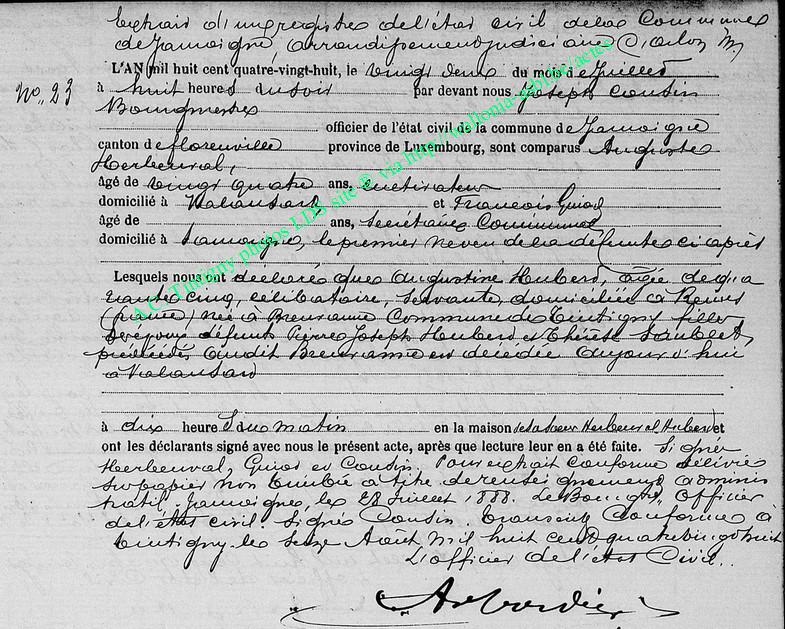 Extrait d'un registre de l'état civil de la Commune
de Jamoigne, arrondissement judiciaire d'Arlon
L'AN mil huit cent quatre-vingt-huit, le vingt deux du mois de Juillet
No. 23 à huit heures du soir par devant nous Joseph Cousin
Bourgmestre
officier de l'état civil de la commune de Jamoigne
canton de florenville province de Luxembourg, sont comparus Auguste
Herbeuval,
âgé de vingt quatre ans, cultivateur
domicilié à Valansart et François Guiod
âgé de ans, secrétaire Communal
domicilié à Jamoigne, le premier neveu de la défunte ci après
Lesquels nous ont déclaré que Augustine Hubert, âgée de
cinq, célibataire, servante, domiciliée à
(france) née à Breuvanne Commune de Tintigny fille
défunts Pierre Joseph Hubert et Thérèse
prédécédés audit Breuvanne est décédée aujourd'hui
à Valansart
à dix heures du matin en la maison de sa soeur Herbeuval Hubert et
ont les déclarants signé avec nous le présent acte, après que lecture leur en a été faite. Signé
Herbeuval, Guiod et Cousin. Pour extrait conforme délivré
sur papier non timbré à titre de renseignement adminis
tratif, Jamoigne, le 28 Juillet 1888. Le Bourgm. Officier
de l'état civil signé Cousin. Transcrit conforme à
Tintigny le seize Aout mil huit cent quatre vingt huit
L'officier de l'état Civil.
A.C. Tintigny photos LDS site ® via http://wallonia-public/actes